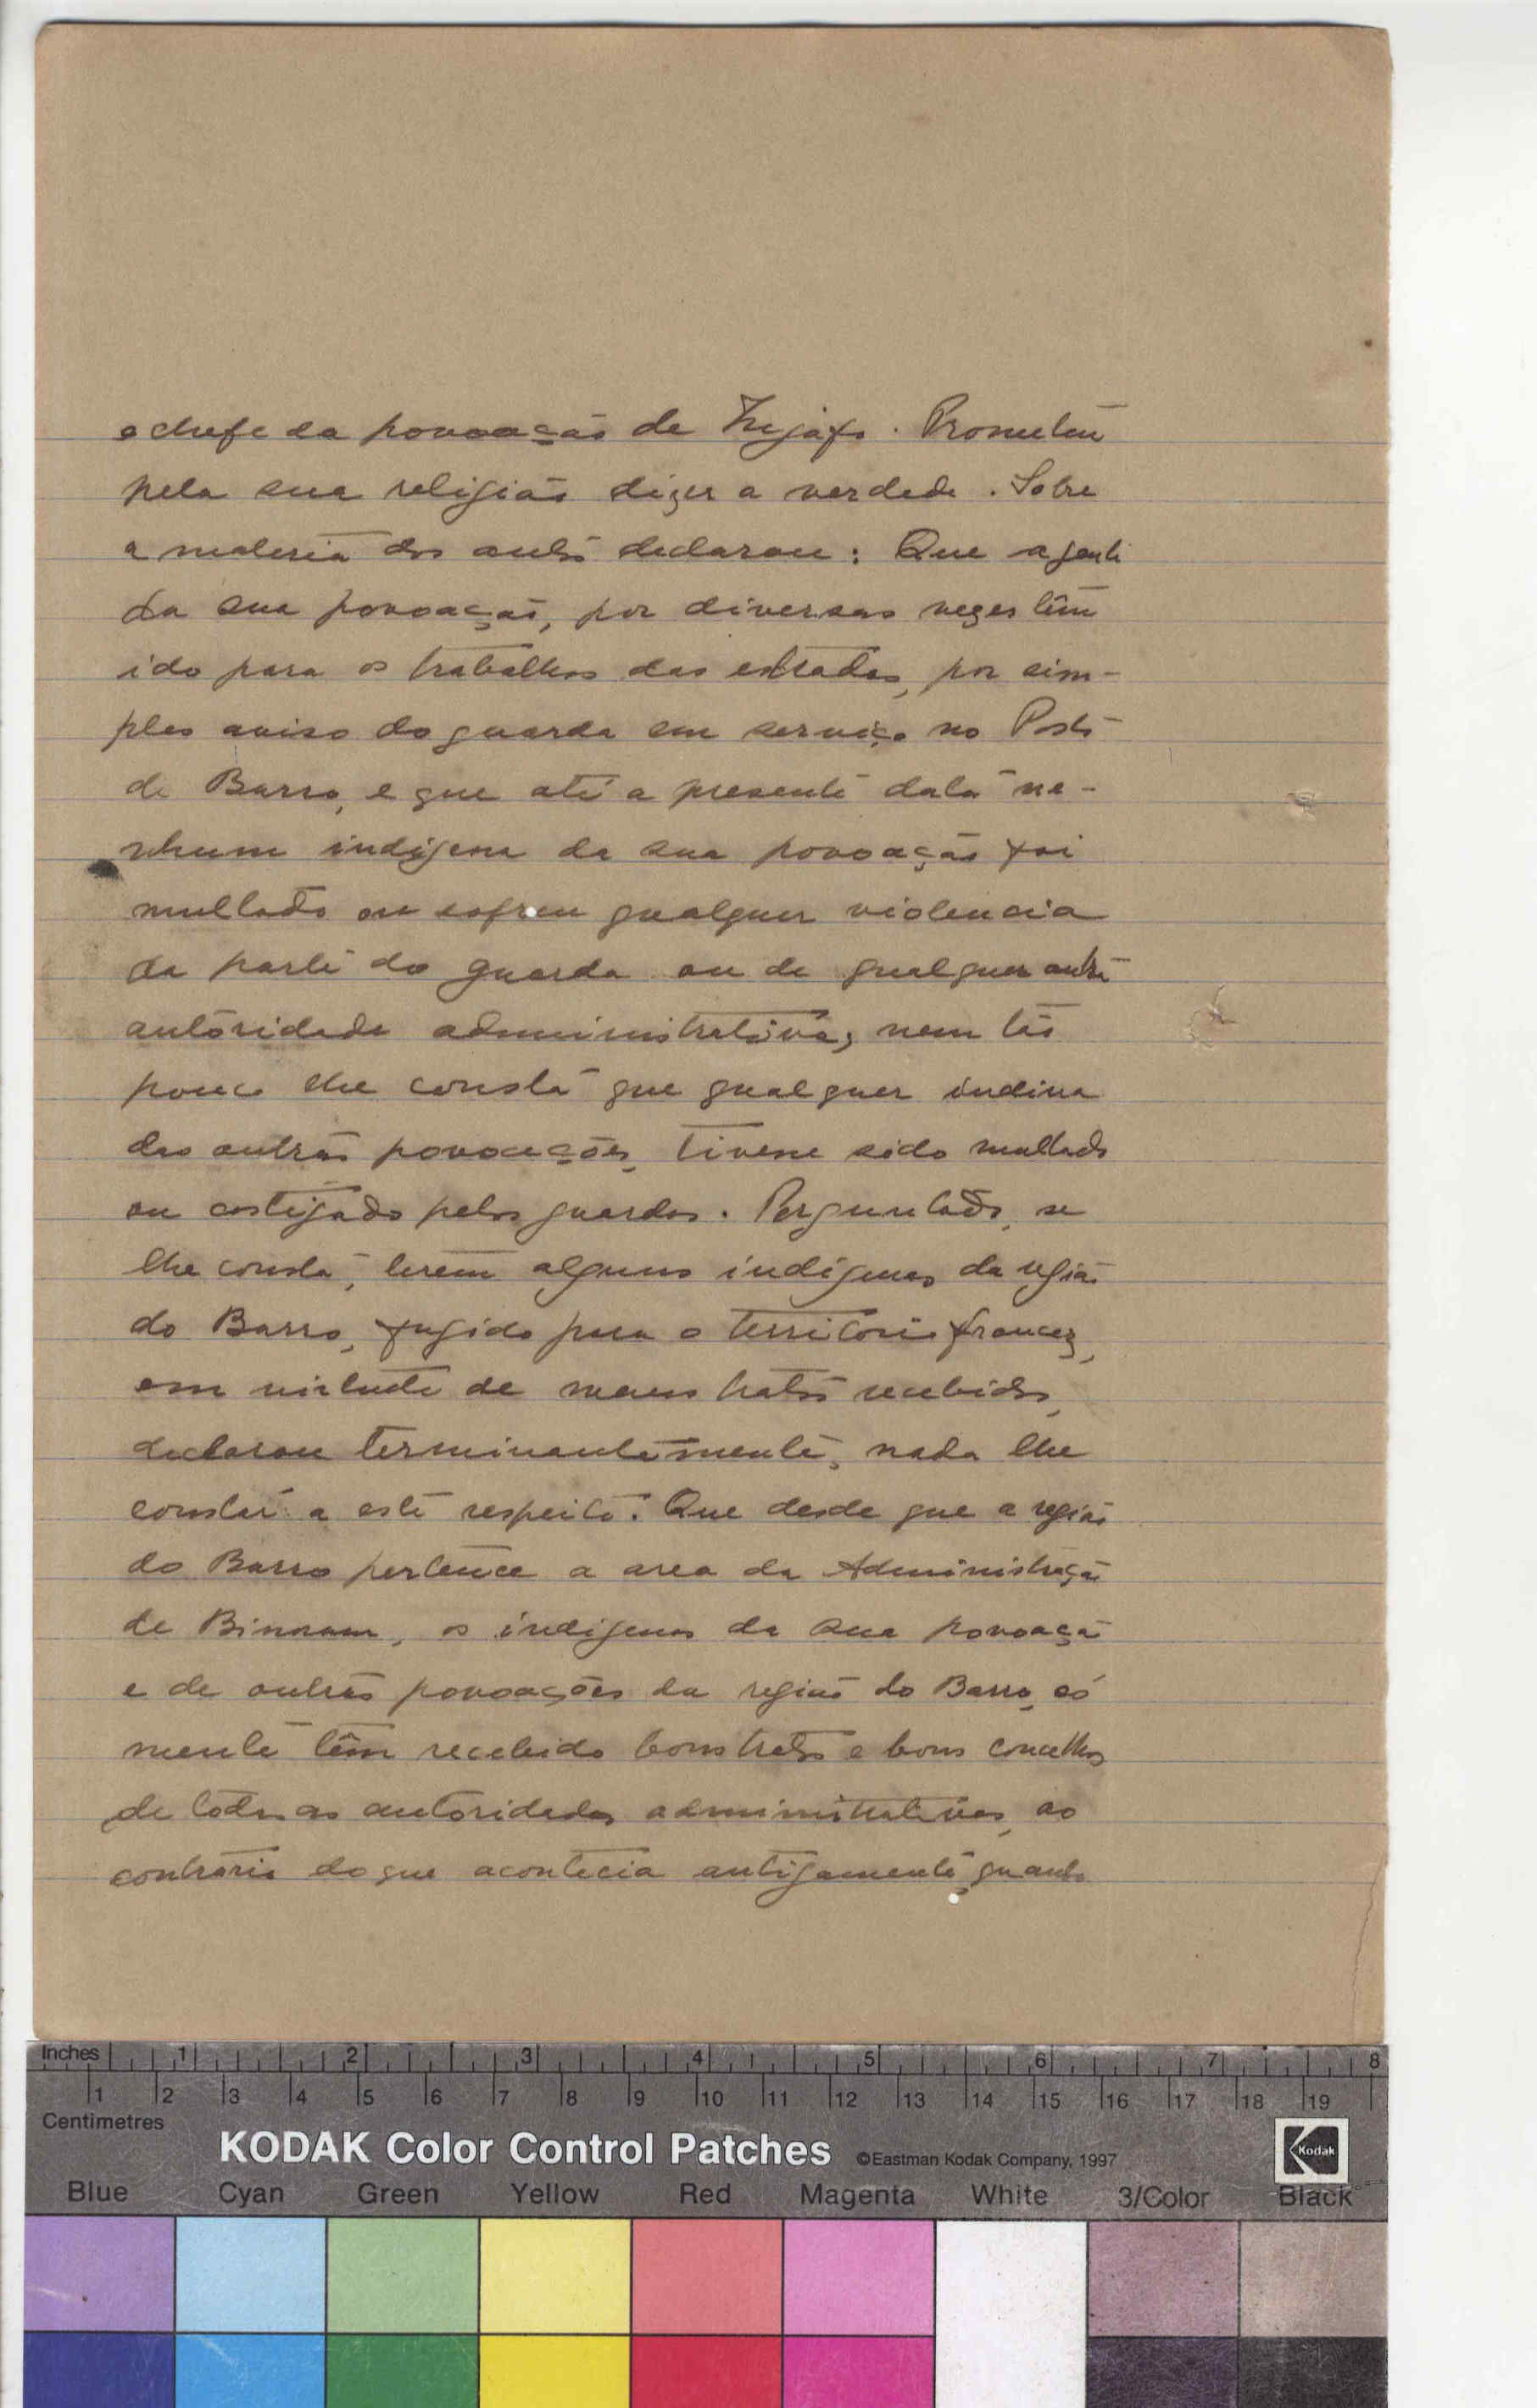 o chefe da povoação de . Prometeu
pela sua religião dizer a verdade. Sobre
a materia dos autos declarou: Que a gente
da sua povoação, por diversas vezes têm
ido para os trabalhos das estradas, por sim-
ples aviso do guarda em serviço no Posto
de Barro, e que até a presente data ne-
nhum indigena da sua povoação foi
multado ou sofreu qualquer violencia
da parte do guarda ou de qualquer outra
autoridade administrativa, nem tão
pouco lhe consta que qualquer indina
das outras povoações, tivesse sido multado
ou castigado pelos guardas. Perguntado, se
lhe consta, terem alguns indigenas da região
do Barro, fugido para o territorio francez,
em virtude de maus tratos recebidos,
declarou terminantemente, nada lhe
constar a este respeito. Que desde que a região
do Barro pertence a area da Administração
de , os indigenas da sua povoação
e de outras povoações da região do Barro, só
mente têm recebido bons tratos e bons concelhos
de todas as autoridades administrativas, ao
contrario do que acontecia antigamente, quando
Inches 1 2 3 4 5 6 7 8
1 2 3 4 5 6 7 8 9 10 11 12 13 14 15 16 17 18 19
Centimetres
KODAK Color Control Patches ©Eastman Kodak Company, 1997 Kodak
Blue Cyan Green Yellow Red Magenta White 3/Color Black